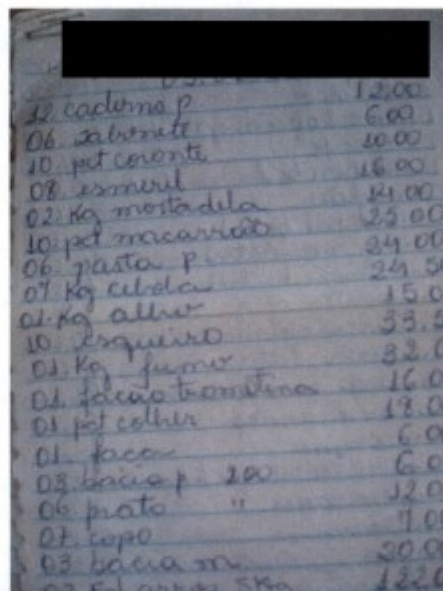 12 caderno p 12,00
06 sabonete 6.00
10 pct coronte 10.00
08 esmeril 16 00
02 Kg mortadela 14.00
10 pct macarrão 25 00
06 pasta p 24 00
07 Kg cebola 24 50
01 Kg alho 15.0
10 isqueiro 33.
01 Kg fumo 32.0
01 facão tramontina 16.0
01 pct colher 18.0
01 faca 6.0
03 bacia p 200 6.0
06 prato " 12.0
07 copo 7.0
03 bacia m 20 0
5Kg 122.0